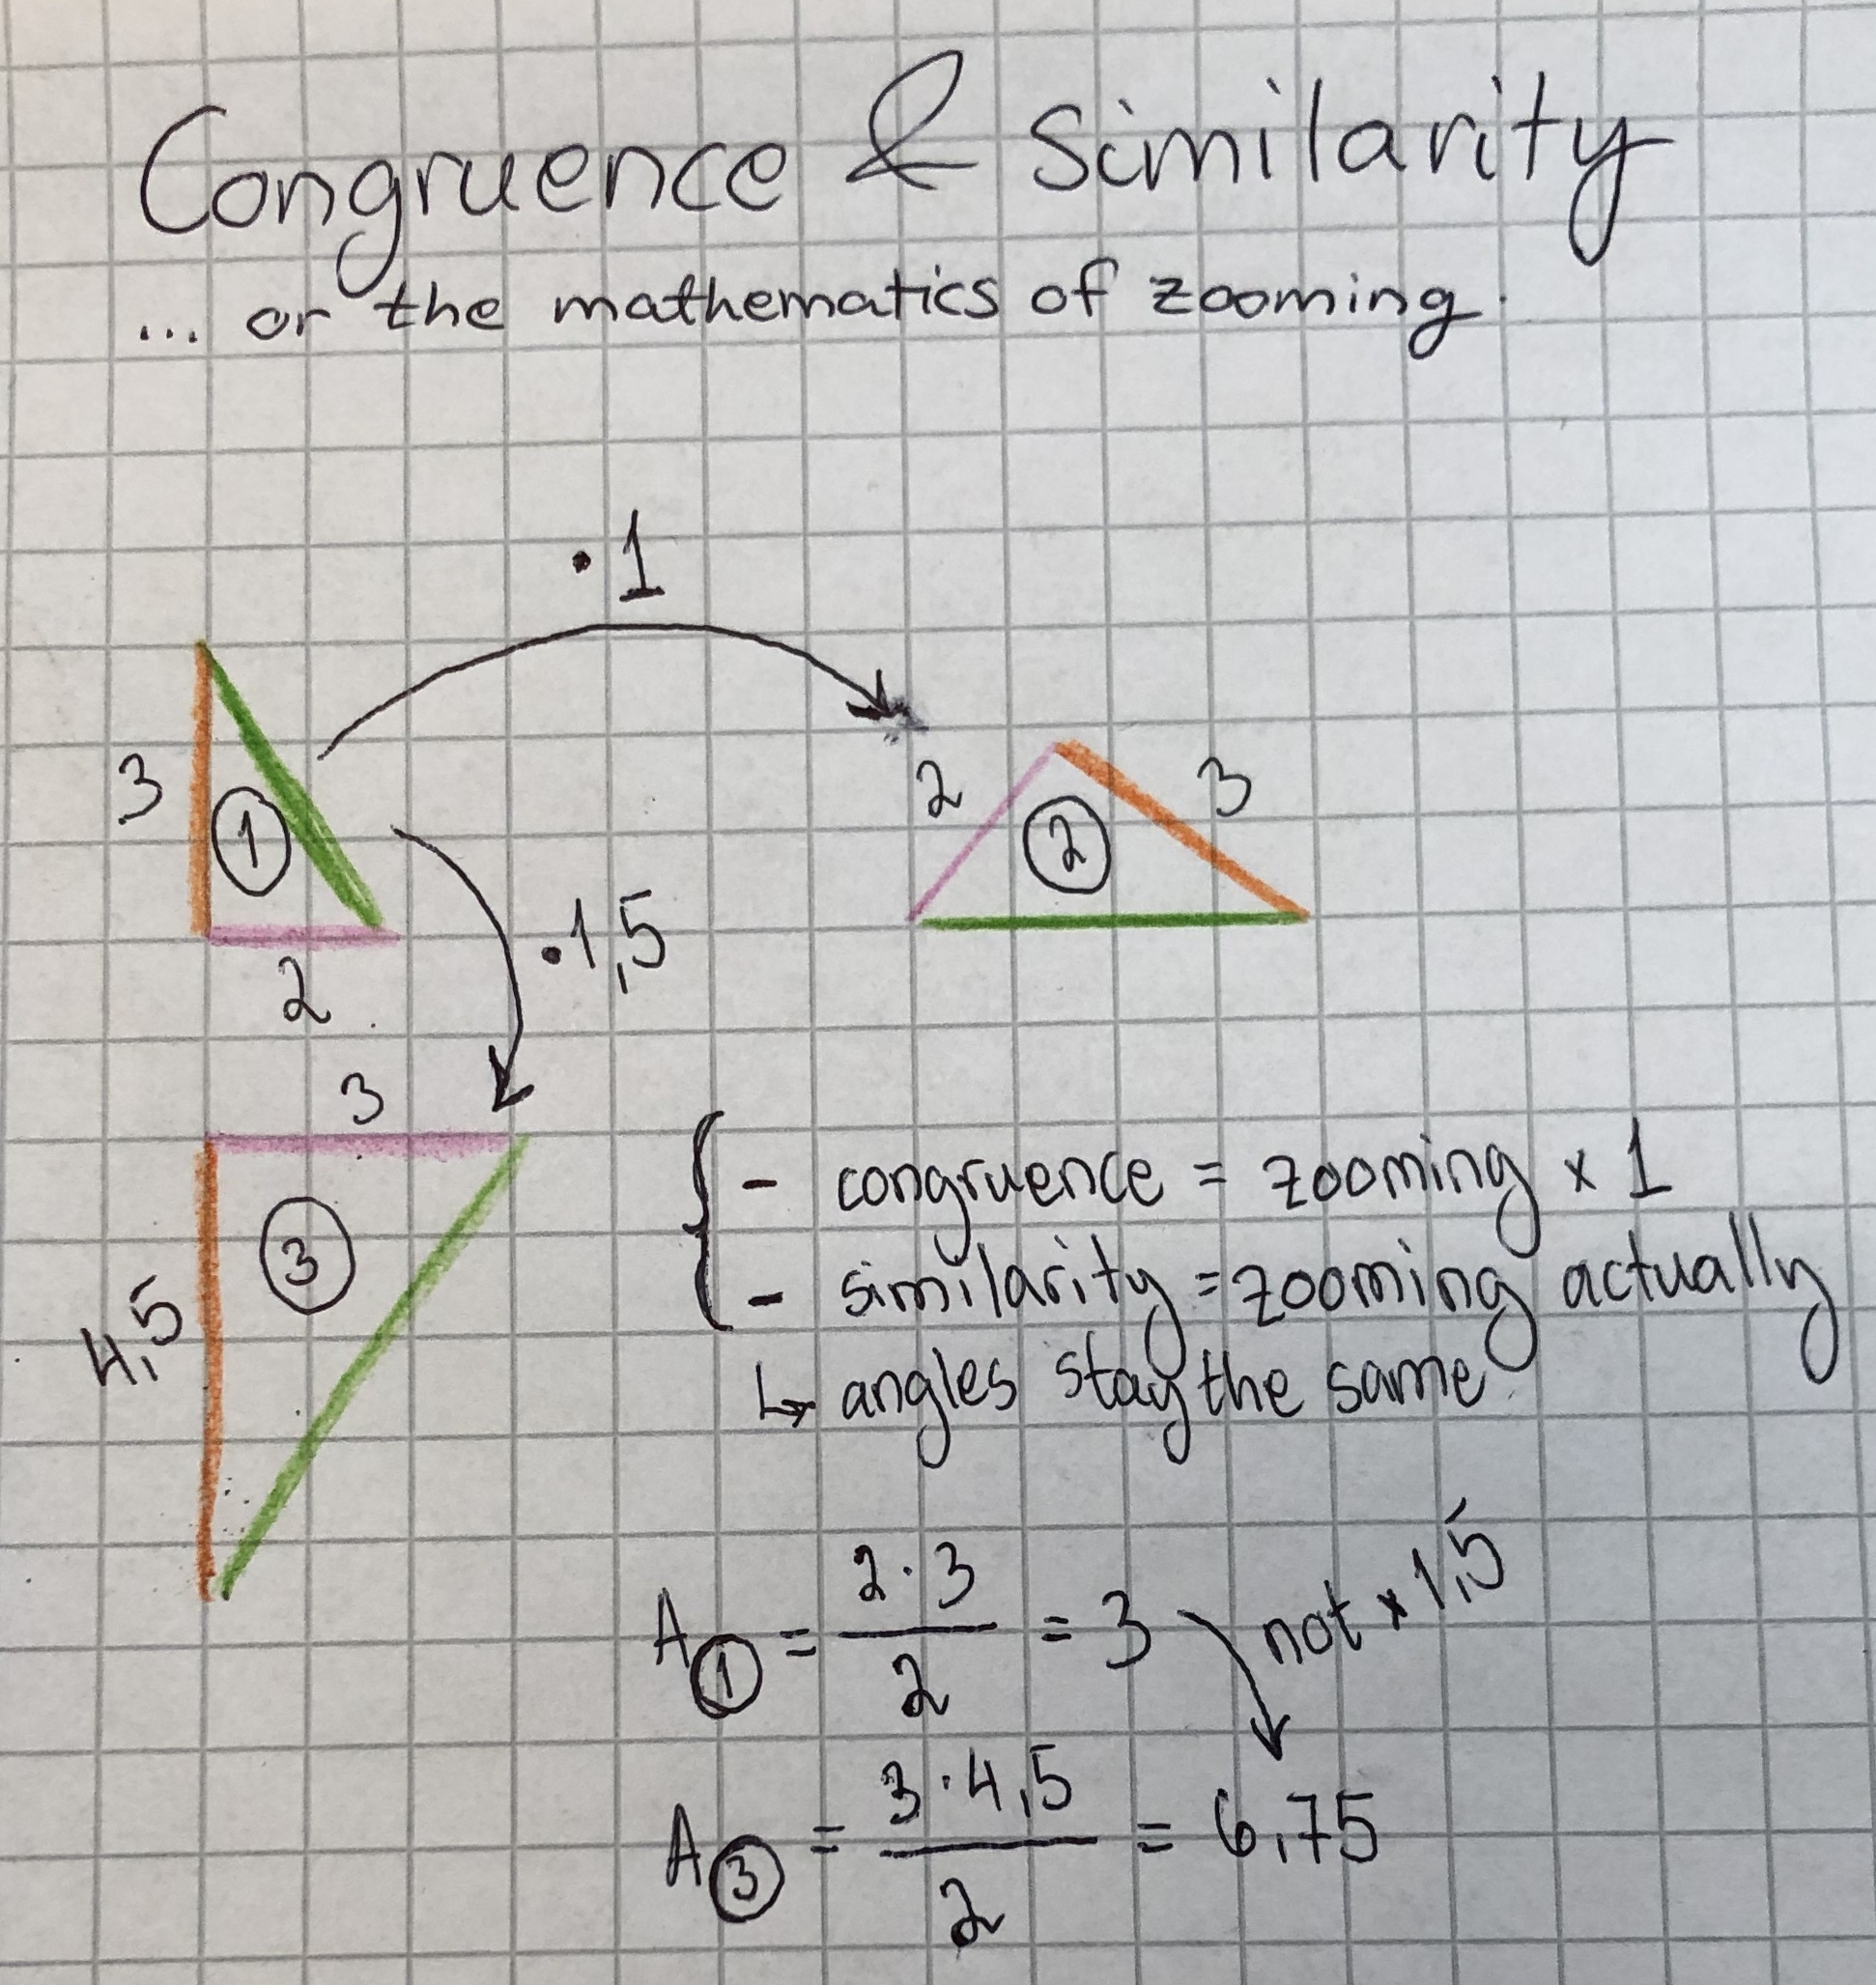 Congruence & Similarity
... or the mathematics of zooming.
·1
3
①
2
2
②
3
·1,5
3
③
4,5
{ - congruence = zooming x 1
- similarity = zooming actually
↳ angles stay the same
A① = 2·3 / 2 = 3
not x 1,5
A③ = 3·4,5 / 2 = 6,75